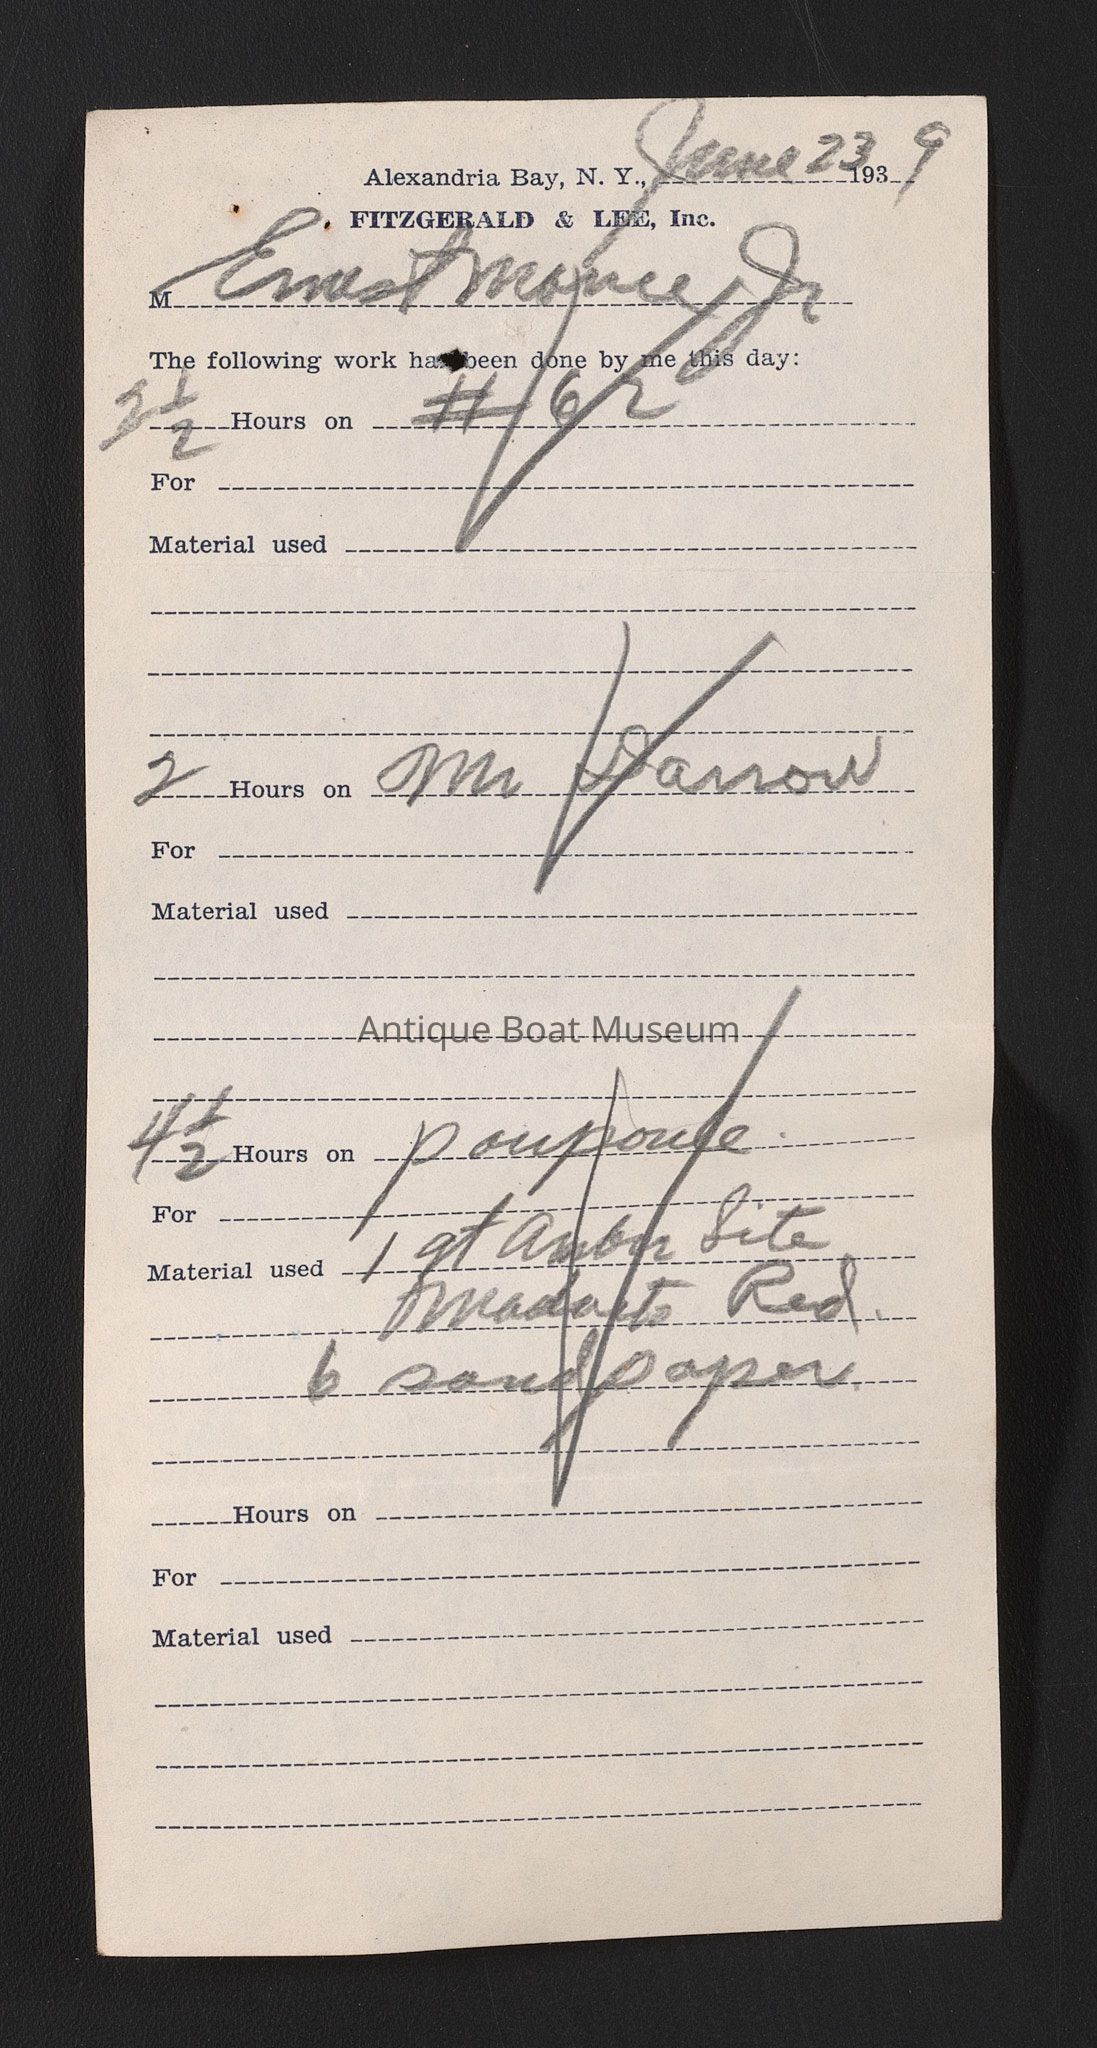 Alexandria Bay, N. Y., June 23 1939
FITZGERALD & LEE, Inc.
M Ernest Jr
The following work has been done by me this day:
Hours on #62
For
Material used
2 Hours on Mr Darrow
For
Material used
Antique Boat Museum
4 1/2 Hours on
For
Material used 1 qt
Red.
6 sandpaper.
Hours on
For
Material used